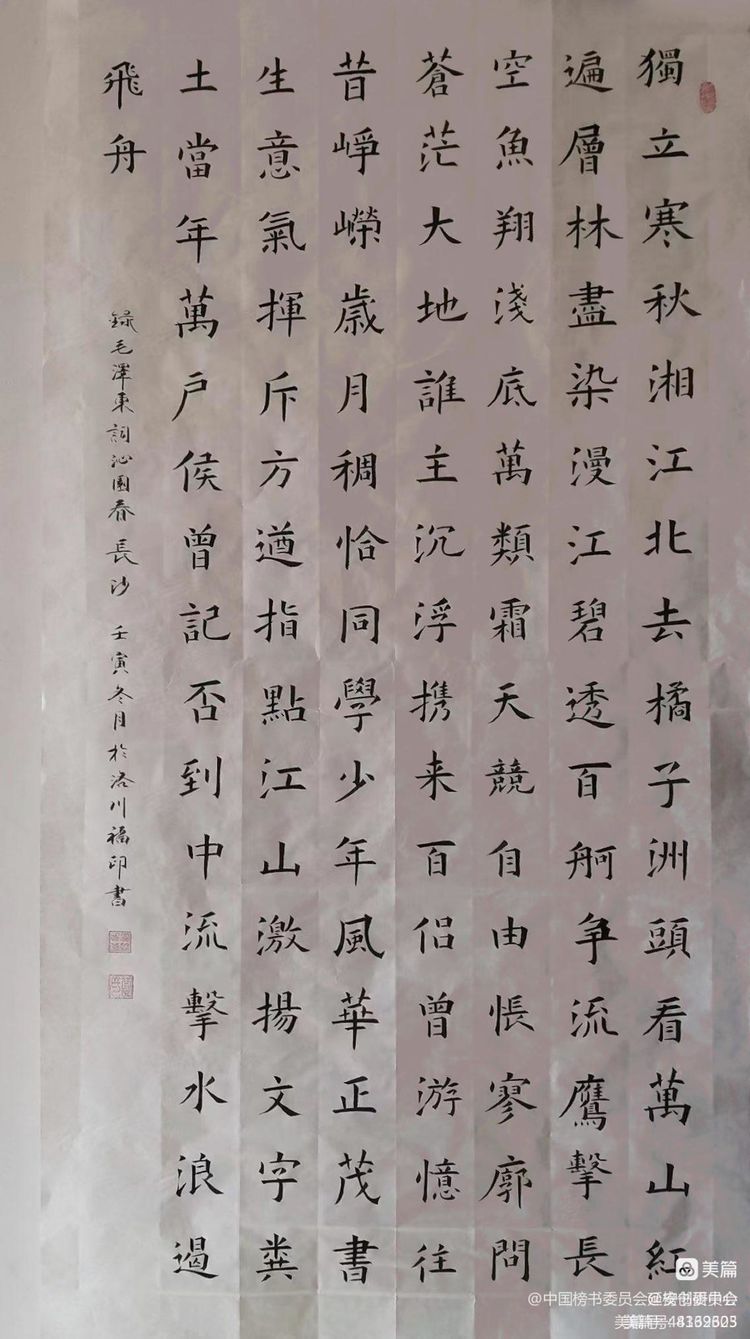 獨立寒秋湘江北去橘子洲頭看萬山紅
遍層林盡染漫江碧透百舸争流鷹擊長
空魚翔淺底萬類霜天競自由悵寥廓問
蒼茫大地誰主沉浮携来百侣曾游憶往
昔崢嶸歲月稠恰同學少年風華正茂書
生意氣揮斥方遒指點江山激揚文字糞
土當年萬户侯曾記否到中流擊水浪遏
飛舟
録毛澤東詞沁園春長沙 壬寅冬月於洛川福印書
美篇
@中国榜书委员会